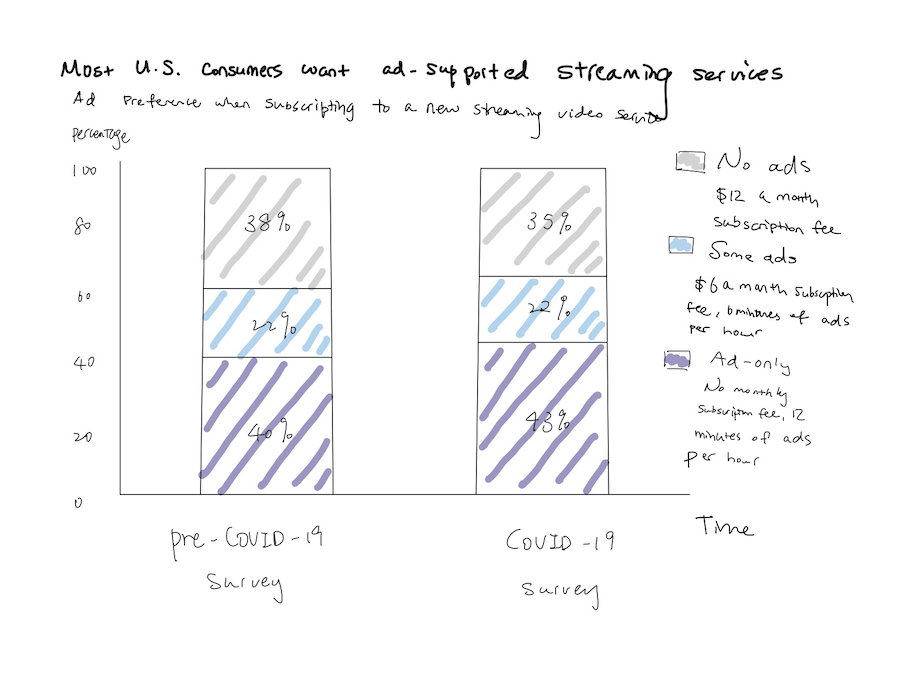 Most U.S. consumers want ad-supported streaming services
Ad Preference when subscripting to a new streaming video service
percentage
100
80
60
40
20
0
38%
22%
40%
35%
22%
43%
pre-COVID-19
survey
COVID-19
survey
Time
No ads
$12 a month
subscription fee
Some ads
$6 a month subscription
fee, 6 minutes of ads
per hour
Ad-only
No monthly
subscription fee, 12
minutes of ads
per hour